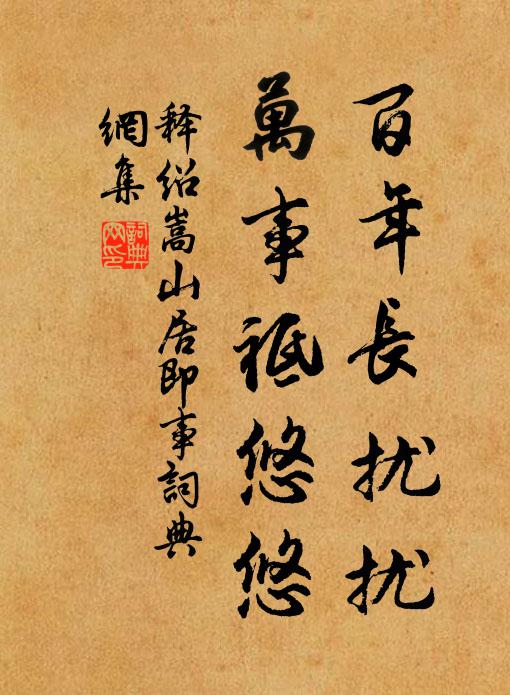 百年長扰扰
萬事祗悠悠
释绍嵩山居即事詞典
網集
詞典
网印